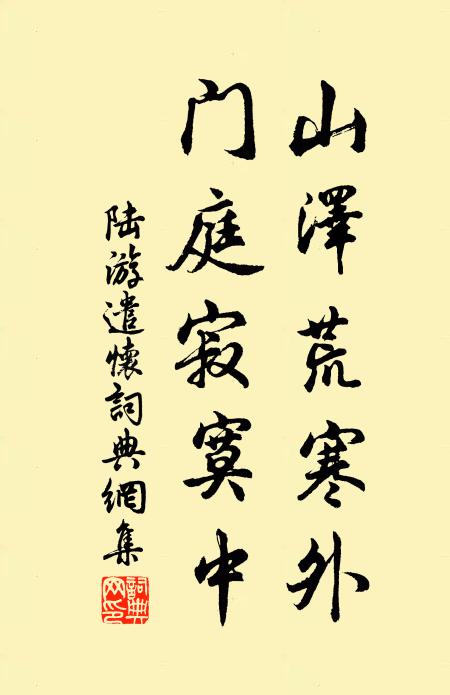 山澤荒寒外
门庭寂寞中
陆游遣懷詞典網集
詞典網印